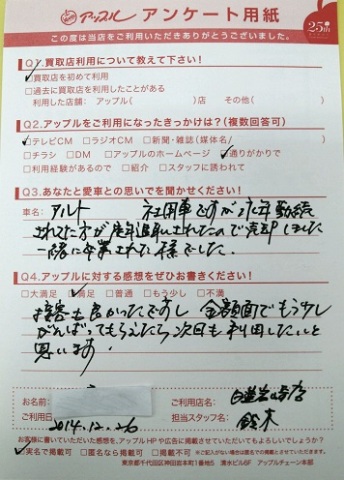 アップル アンケート用紙
25th
この度は当店をご利用いただきありがとうございました。
Q1.買取店利用について教えて下さい!
☑買取店を初めて利用
□過去に買取店を利用したことがある
利用した店舗: アップル( )店 その他( )
Q2.アップルをご利用になったきっかけは?(複数回答可)
☑テレビCM □ラジオCM □新聞・雑誌(媒体名/ )
□チラシ □DM □アップルのホームページ ☑通りがかりで
□利用経験があるので □紹介 □スタッフに誘われて
Q3.あなたと愛車との思いでを聞かせください!
車名: アルト 社用車ですが永年勤続
されてた方が定年退職されたので売却しました
一緒に卒業された様でした。
Q4.アップルに対する感想をぜひお書きください!
□大満足 ☑満足 □普通 □もう少し □不満
接客も良かったですし 金額面でもう少し
がんばってもらえたら次回も利用したいと
思います.
お名前:
ご利用店名:
ご利用日 2014.12.26
担当スタッフ名: 鈴木
お客様に書いていただいた感想を、アップルHPや広告に掲載させていただいてもよろしいでしょうか?
☑実名で掲載可 □匿名なら掲載可 □掲載不可 ※ご記入がない場合は匿名での掲載とさせていただきます。
東京都千代田区神田岩本町1番地5 清水ビル6F アップルチェーン本部